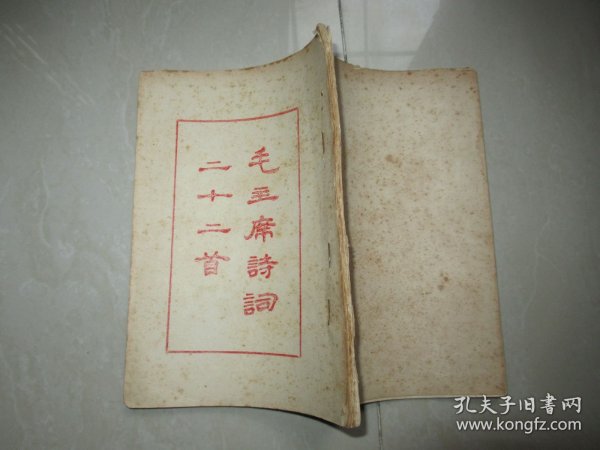 毛主席詩詞
二十二首
孔夫子旧書网
www.kongfz.com